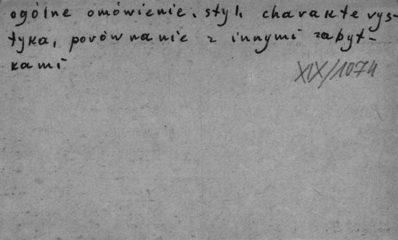 ogólne omówienie, styl, charakterys-
tyka, porównanie z innymi zabyt-
kami
XIX/1074